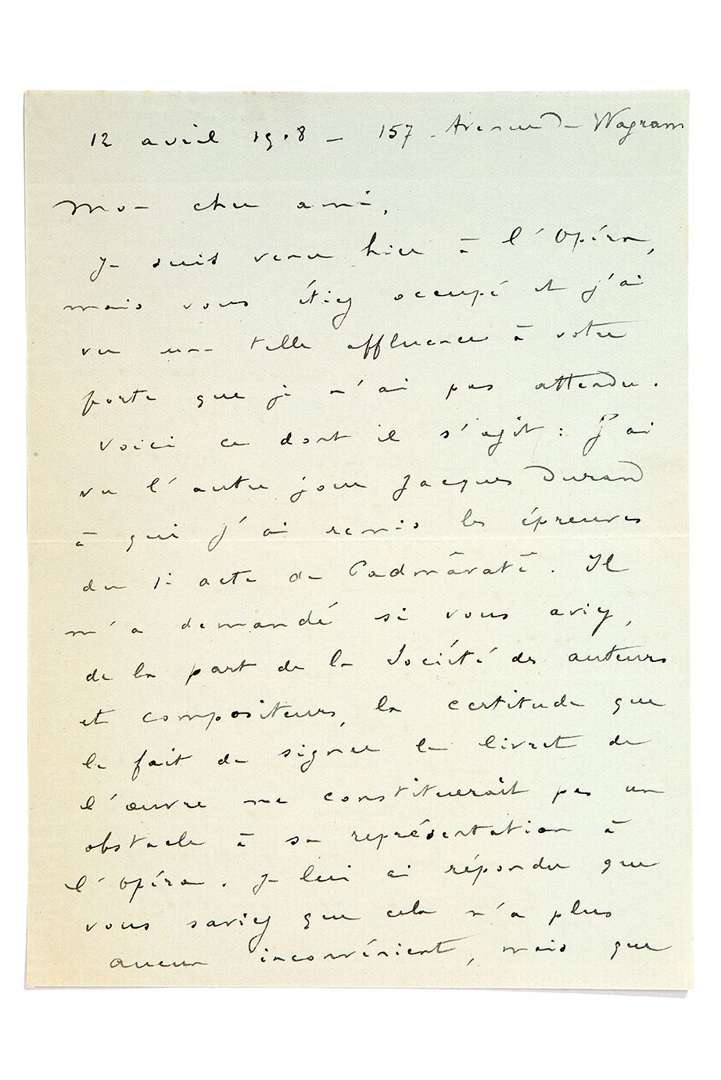 12 avril 1918 – 157 Avenue de Wagram
Mon cher ami,
Je suis venu hier à l'Opéra,
mais vous étiez occupé et j'ai
vu une telle affluence à votre
porte que je n'ai pas attendu.
Voici ce dont il s'agit : J'ai
vu l'autre jour Jacques Durand
à qui j'ai remis les épreuves
du 1er acte de Padmâvatî. Il
m'a demandé si vous aviez,
de la part de la Société des auteurs
et compositeurs, la certitude que
le fait de signer le livret de
l'œuvre ne constituerait pas un
obstacle à sa représentation à
l'Opéra. Je lui ai répondu que
vous saviez que cela n'a plus
aucun inconvénient, mais que